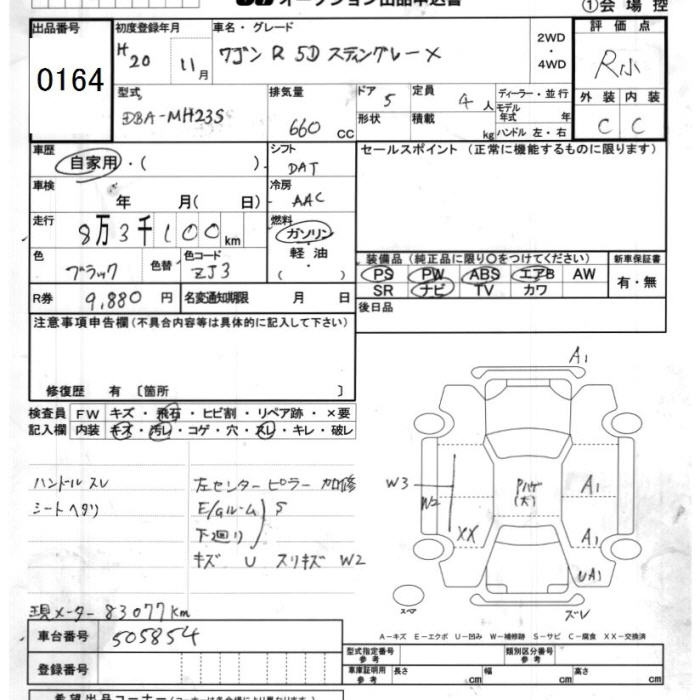 オークション出品申込書
①会場控
出品番号
0164
初度登録年月
H20 11月
車名・グレード
ワゴン R 5D スティングレー X
2WD
・
4WD
評価点
R小
型式
DBA-MH23S
排気量
660 CC
ドア 5
定員 4人
形状
積載 kg
ディーラー・並行
モデル年式 年
ハンドル 左・右
外装 内装
C C
車歴
自家用・( )
シフト
DAT
セールスポイント (正常に機能するものに限ります)
車検
年 月( 日)
冷房
AAC
走行
8万3千100km
燃料
ガソリン
軽油・
( )
色
ブラック
色替
色コード
ZJ3
装備品 (純正品に限り○をつけてください)
新車保証書
PS PW ABS エアB AW
SR ナビ TV カワ
有・無
R券 9,880円
名変通知期限 月 日
後日品
注意事項申告欄(不具合内容等は具体的に記入して下さい)
修復歴 有 〔箇所 〕
検査員
記入欄
FW キズ・飛石・ヒビ割・リペア跡・×要
内装 キズ・汚レ・コゲ・穴・スレ・キレ・破レ
ハンドル スレ
シート ヘタリ
左センターピラー 加修
E/Gルーム
下廻り
S
キズ U スリキズ W2
A1
W3
W2
XX
Pハゲ
(大)
A1
A1
UA1
スペア
ズレ
現メーター 83077km
A-キズ E-エクボ U-凹み W-補修跡 S-サビ C-腐食 XX-交換済
車台番号 505854
登録番号
型式指定番号
参考
類別区分番号
参考
車庫証明用
参考
長さ cm 幅 cm 高さ cm
希望出品コーナー(コーナーは各会場により異なります)